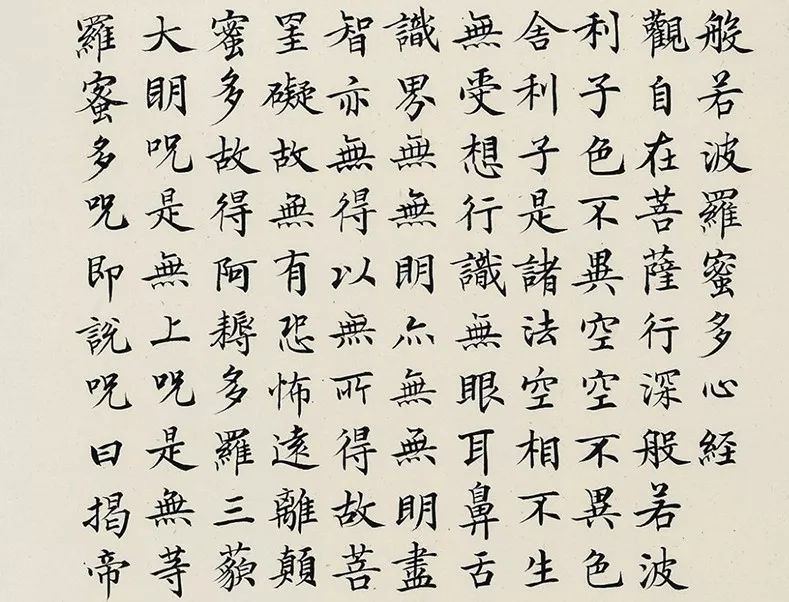 般若波羅蜜多心経
觀自在菩薩行深般若波
利子色不異空空不異色
舍利子是諸法空相不生
無受想行識無眼耳鼻舌
識界無無明亦無無明盡
智亦無得以無所得故菩
罣礙故無有恐怖遠離顛
蜜多故得阿耨多羅三藐
大明呪是無上呪是無等
羅蜜多呪即說呪曰揭帝